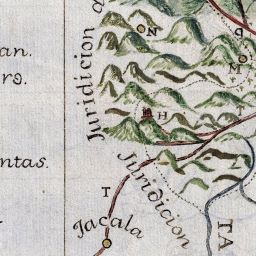 an.
rs.
ntas.
Juridicion
N
9
M
H
Juridicion
T
Jacala
TA